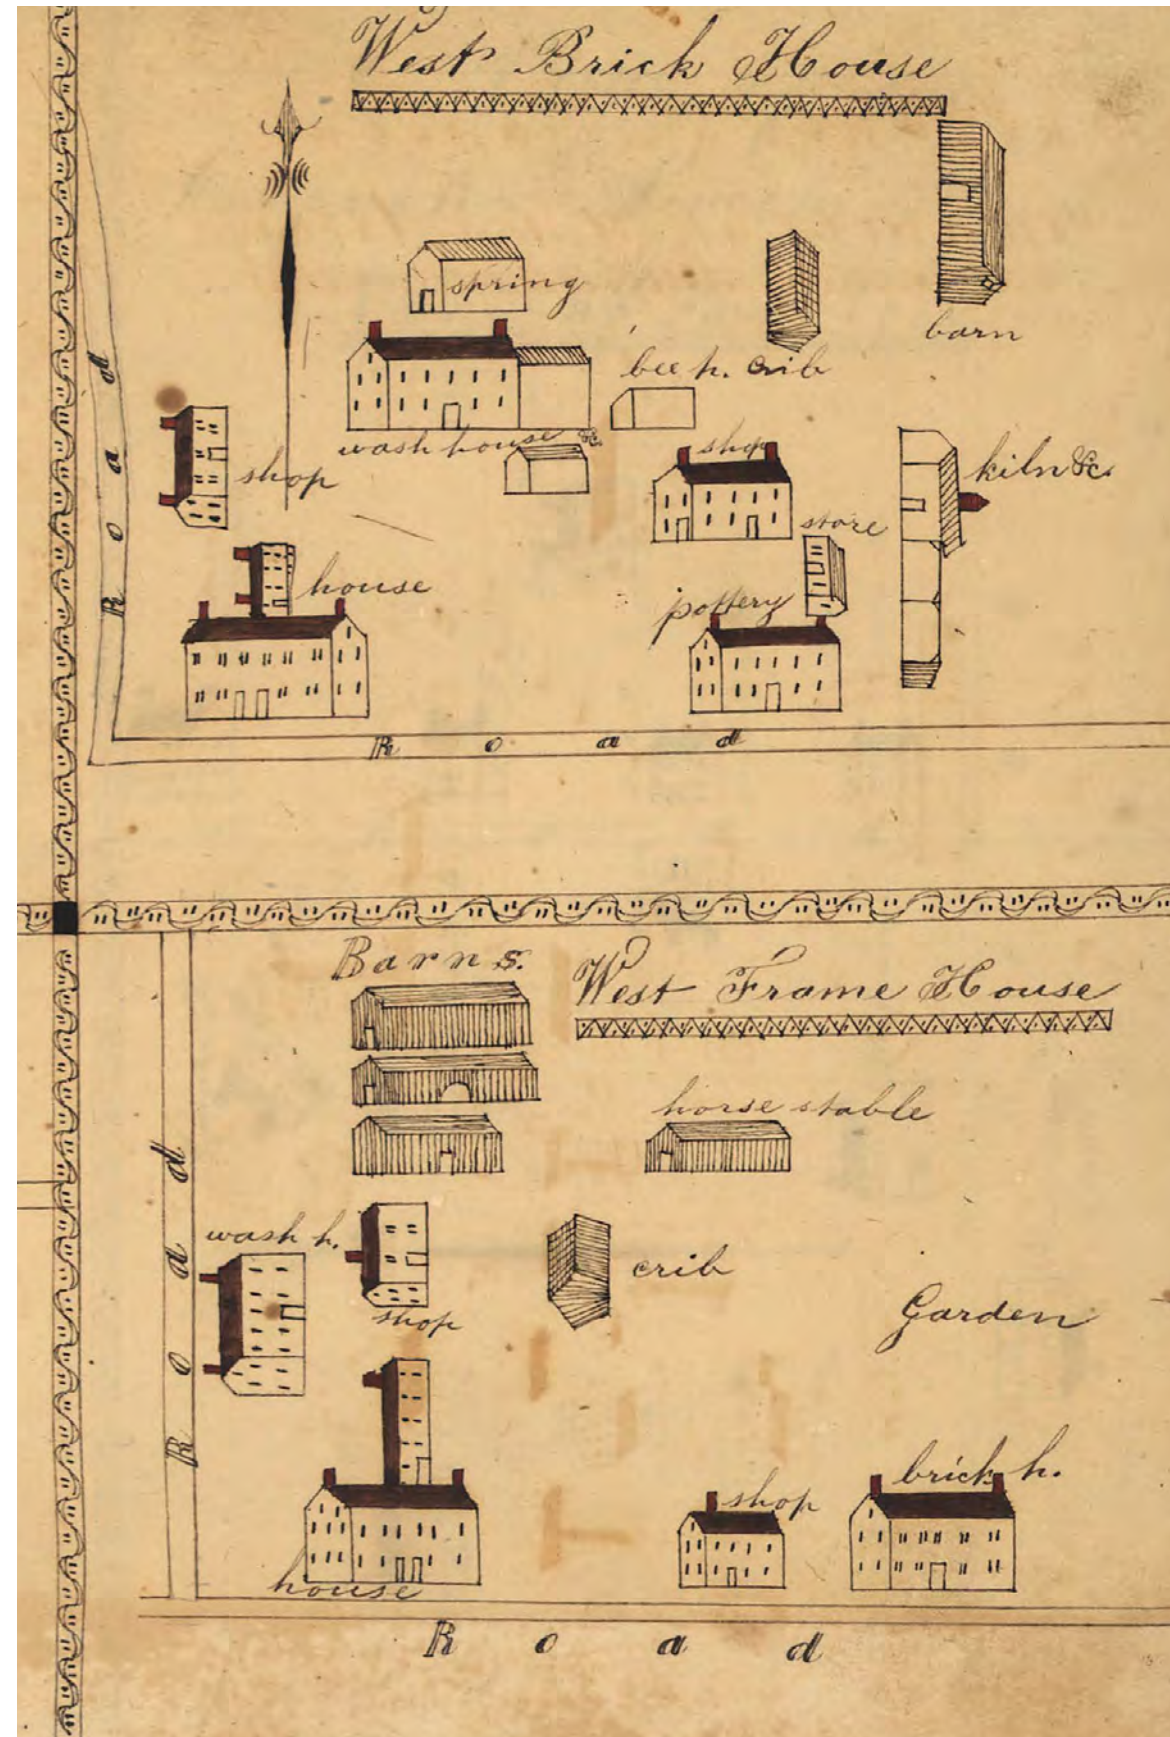 West Brick House
spring
barn
bee h. crib
wash house &c.
shop
shop
kiln &c.
store
house
pottery
Road
Road
Barns.
West Frame House
horse stable
wash h.
shop
crib
Garden
Road
brick h.
shop
house
Road